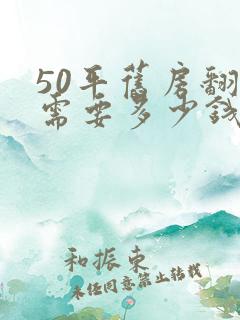 50平舊房翻
需要多少錢
和振東
未經同意禁止轉載